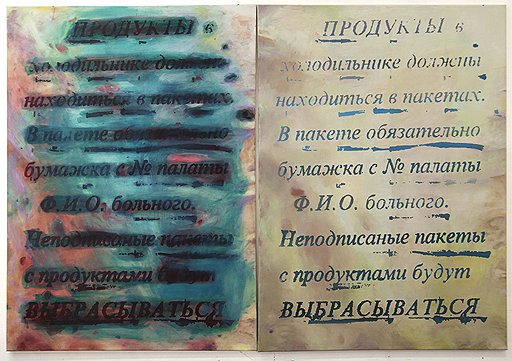 ПРОДУКТЫ в
холодильнике должны
находиться в пакетах.
В пакете обязательно
бумажка с № палаты
Ф.И.О. больного.
Неподписаные пакеты
с продуктами будут
ВЫБРАСЫВАТЬСЯ
ПРОДУКТЫ в
холодильнике должны
находиться в пакетах.
В пакете обязательно
бумажка с № палаты
Ф.И.О. больного.
Неподписаные пакеты
с продуктами будут
ВЫБРАСЫВАТЬСЯ